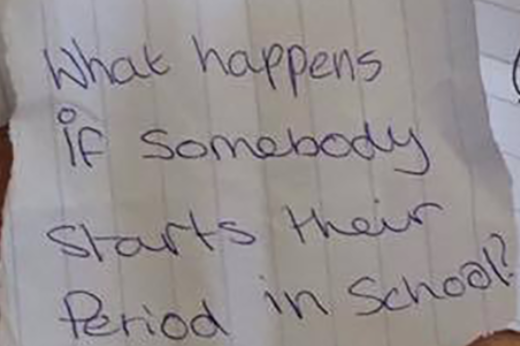 What happens
if somebody
starts their
Period in School?